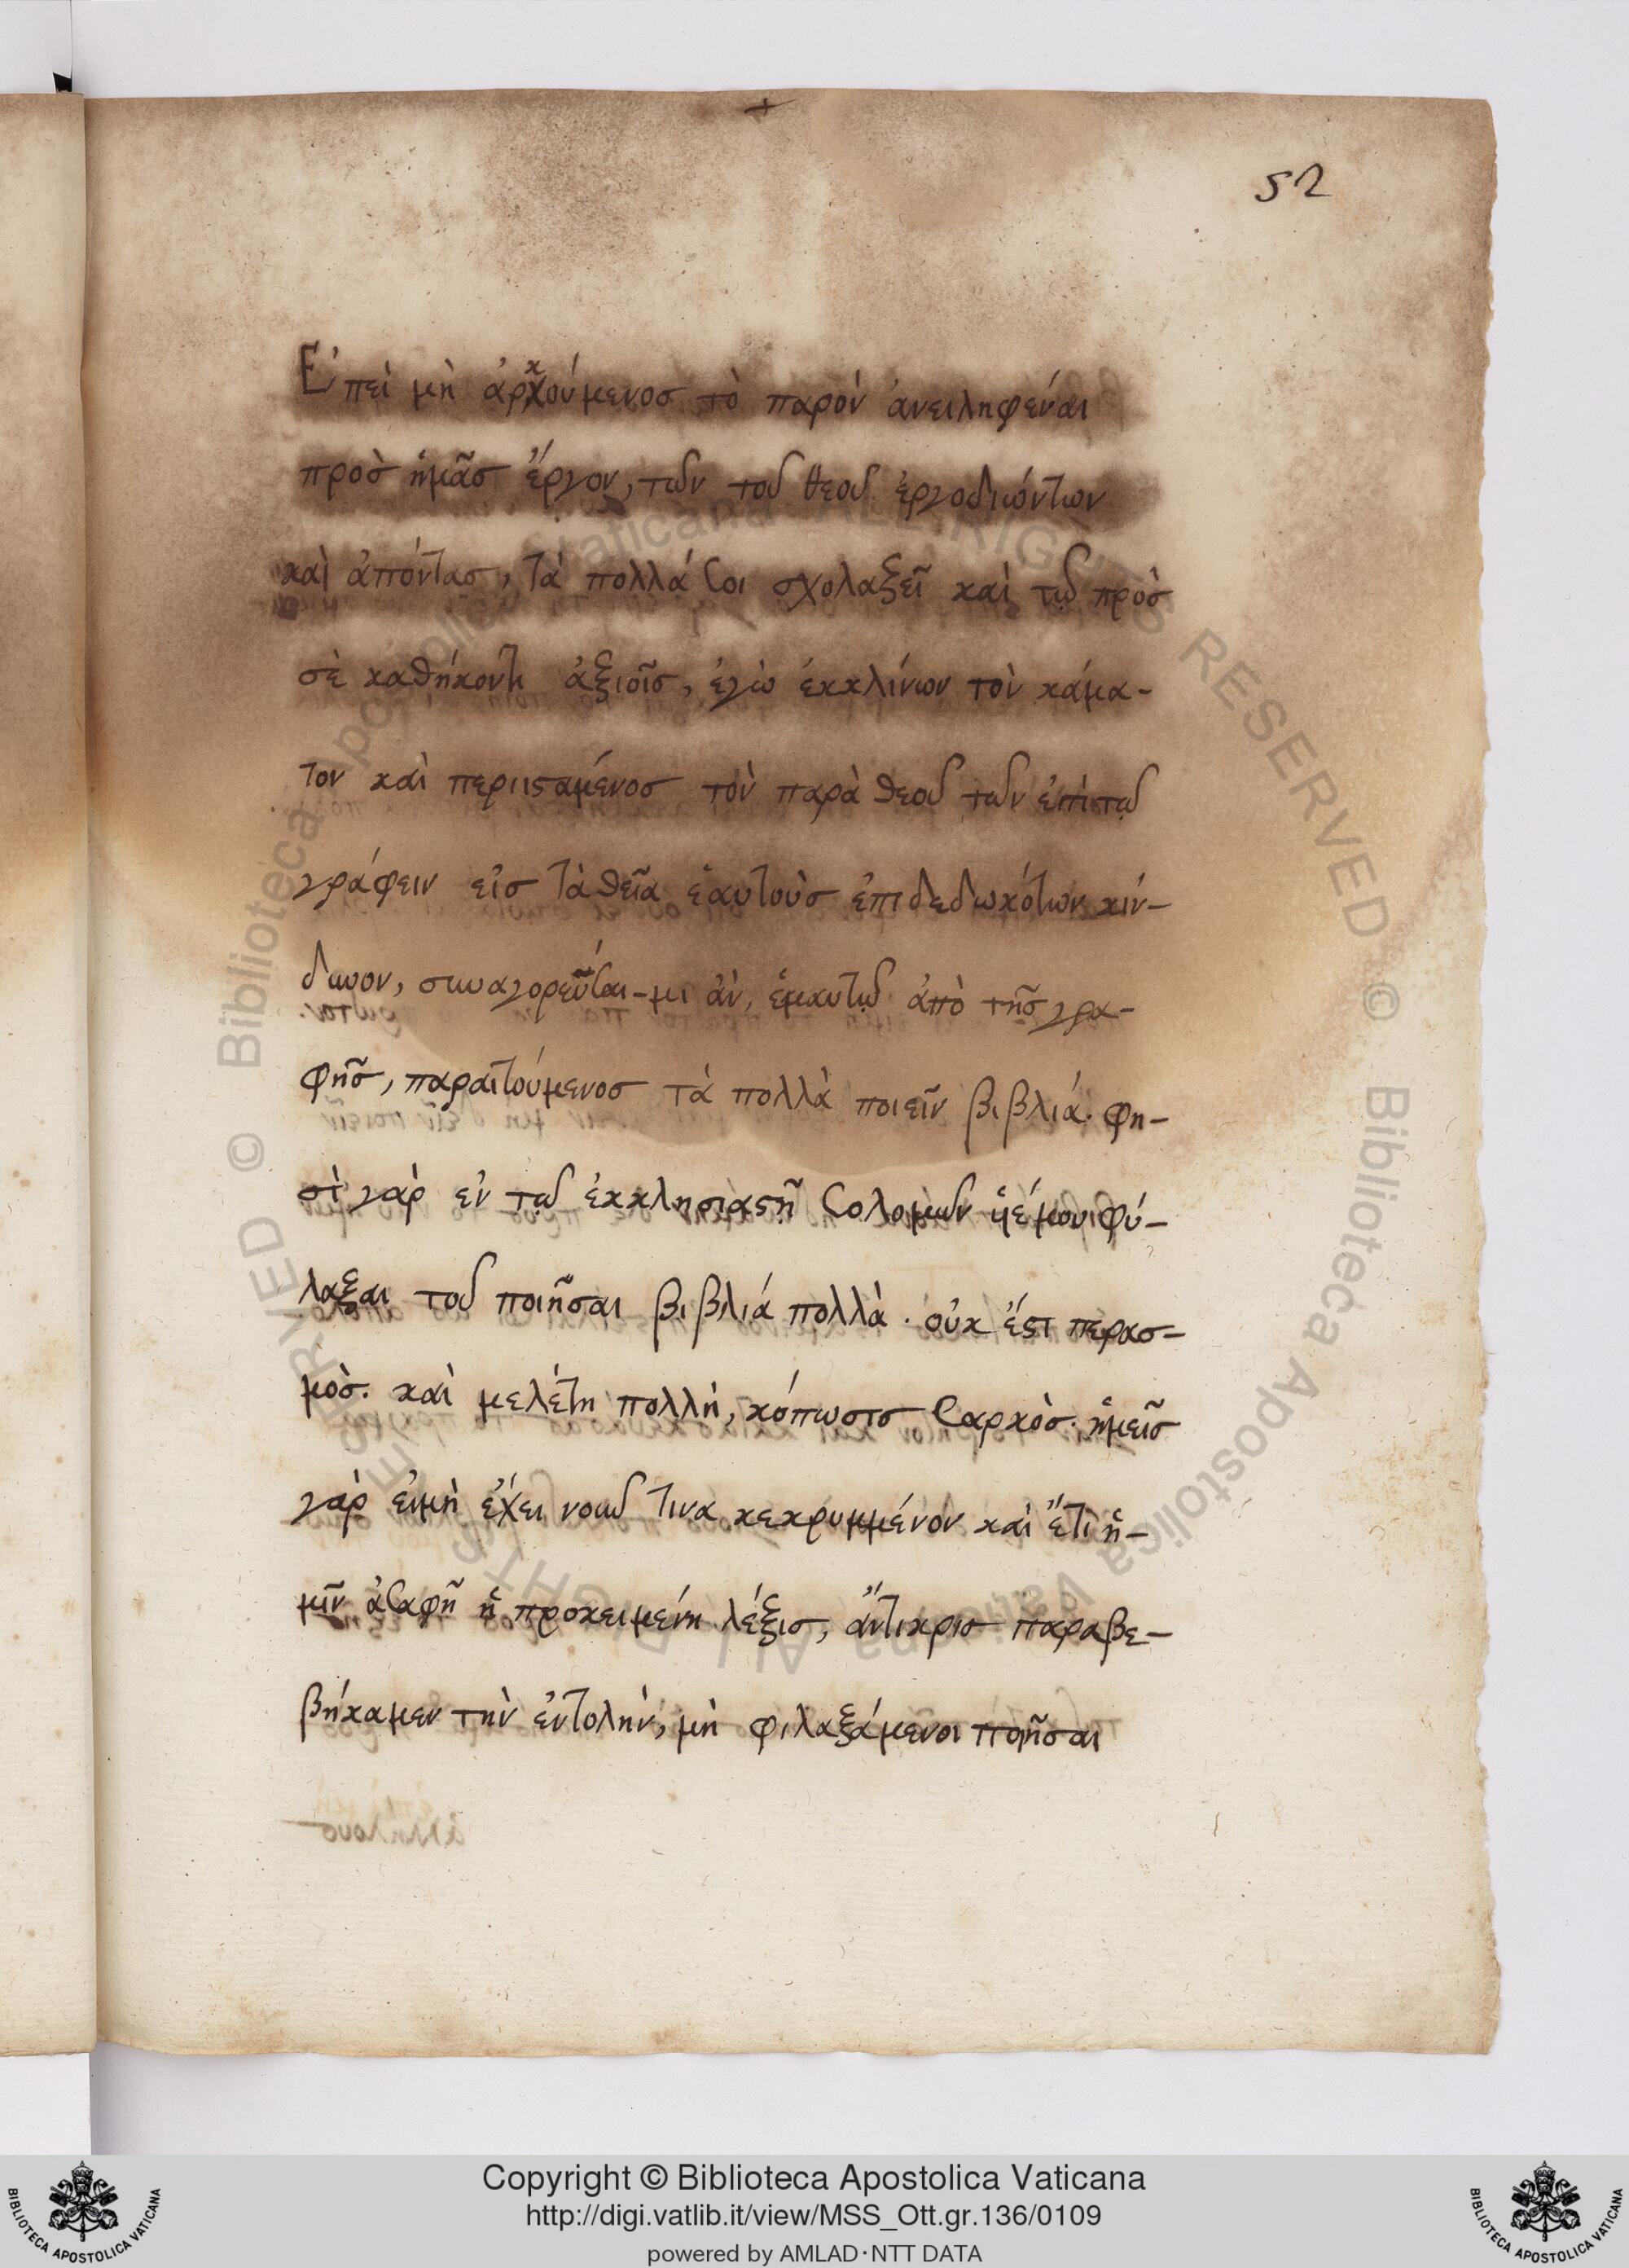 52
Ἐπεὶ μὴ ἀρχούμενοσ τὸ παρὸν ἀνειληφέναι
προσ ἡμᾶσ ἔργον, τῶν τοῦ θεοῦ ἐργοδιώντων
καὶ ἀπόντασ, τὰ πολλά σοι σχολαξεῖ καὶ τῷ πρὸσ
σὲ καθήκοντι ἀξιοῖσ, ἐγὼ ἐκκλίνων τὸν κάμα-
τον καὶ περιισταμένοσ τὸν παρὰ θεοῦ τῶν ἐπὶ τῷ
γράφειν εἰσ τὰ θεῖα ἑαυτοὺσ ἐπιδεδωκότων κίν-
δυνον, συναγορεῦσαι-μι ἂν, ἐμαυτῷ ἀπὸ τῆσ γρα-
φῆσ, παραιτούμενοσ τὰ πολλὰ ποιεῖν βιβλιά. φη-
σὶ γὰρ ἐν τῷ ἐκκλησιαστῇ Σολομῶν ὑιέ μου φύ-
λαξαι τοῦ ποιῆσαι βιβλιά πολλὰ. οὐκ ἔστι περασ-
μὸσ. καὶ μελέτη πολλὴ, κόπωσισ σαρκὸσ. ἡμεῖσ
γὰρ ειμὴ ἔχει νοῦν τινα κεκρυμμένον καὶ ἔτι ἡ-
μῖν ἀσαφῆ ἡ προκειμένη λέξισ, ἄντικρισ παραβε-
βήκαμεν τὴν ἐντολὴν, μὴ φιλαξάμενοι ποιῆσαι
Copyright © Biblioteca Apostolica Vaticana
http://digi.vatlib.it/view/MSS_Ott.gr.136/0109
powered by AMLAD·NTT DATA
BIBLIOTECA APOSTOLICA VATICANA
BIBLIOTECA APOSTOLICA VATICANA